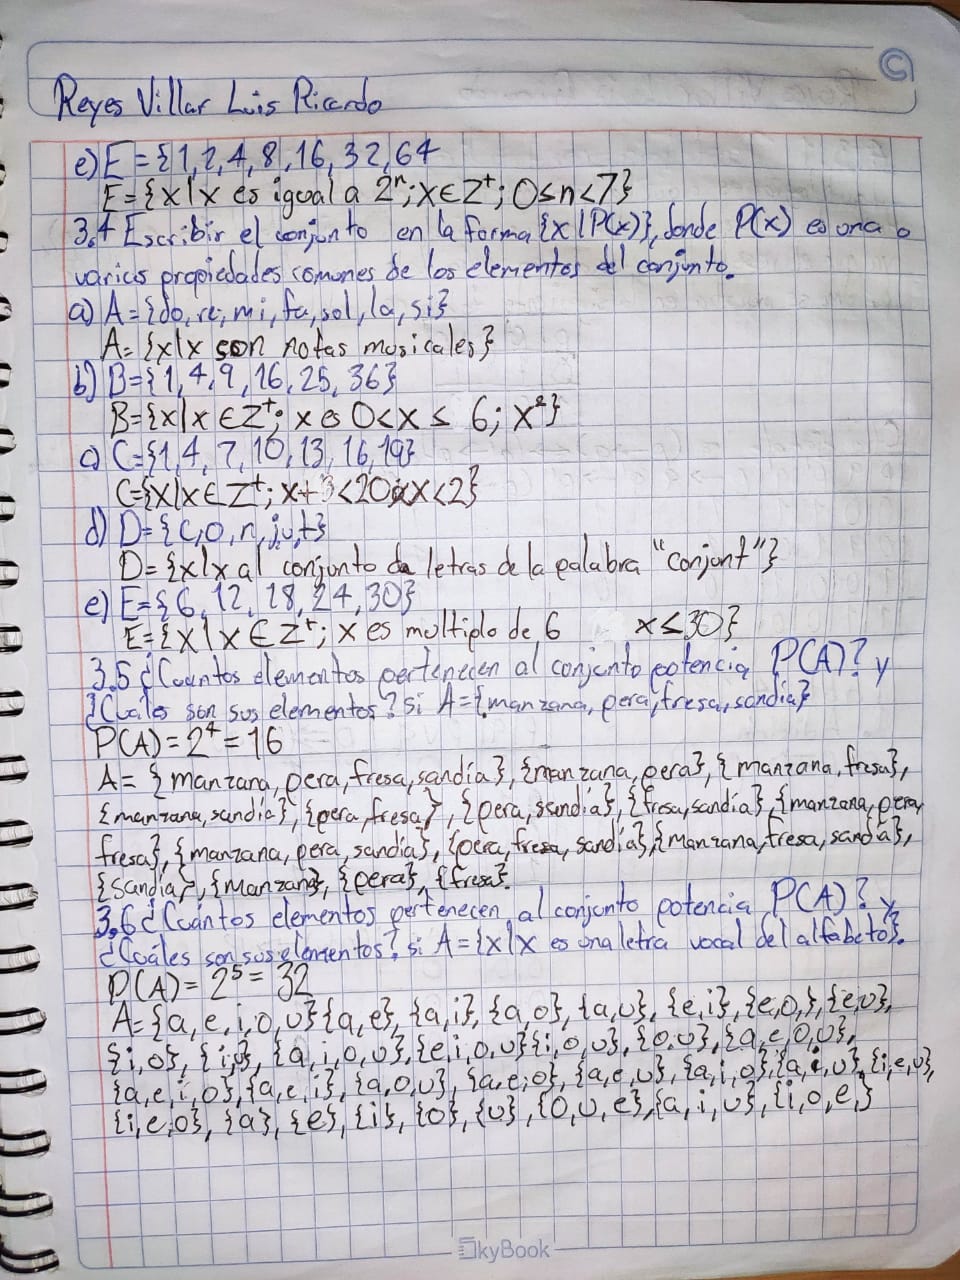 Reyes Villar Luis Ricardo
e) E = {1, 2, 4, 8, 16, 32, 64
E = {x | x es igual a 2ⁿ; x ∈ Z⁺; 0 ≤ n < 7}
3.4 Escribir el conjunto en la forma {x | P(x)}, donde P(x) es una o
varias propiedades comunes de los elementos del conjunto.
a) A = {do, re, mi, fa, sol, la, si}
A = {x | x son notas musicales}
b) B = {1, 4, 9, 16, 25, 36}
B = {x | x ∈ Z⁺; x es 0 < x ≤ 6; x²}
c) C = {1, 4, 7, 10, 13, 16, 19}
C = {x | x ∈ Z⁺; x+3 < 20 x < 2}
d) D = {c, o, n, j, u, t}
D = {x | x al conjunto de letras de la palabra "conjunt"}
e) E = {6, 12, 18, 24, 30}
E = {x | x ∈ Z⁺; x es multiplo de 6 x ≤ 30}
3.5 ¿Cuantos elementos pertenecen al conjunto potencia P(A)? y
¿Cuáles son sus elementos? si A = {manzana, pera, fresa, sandia}
P(A) = 2⁴ = 16
A = {manzana, pera, fresa, sandía}, {manzana, pera}, {manzana, fresa},
{manzana, sandía}, {pera, fresa}, {pera, sandia}, {fresa, sandía}, {manzana, pera,
fresa}, {manzana, pera, sandía}, {pera, fresa, sandía}, {manzana, fresa, sandía},
{sandía}, {manzana}, {pera}, {fresa}.
3.6 ¿Cuántos elementos pertenecen al conjunto potencia P(A)? y
¿Cuáles son sus elementos? si A = {x | x es una letra vocal del alfabeto}.
P(A) = 2⁵ = 32
A = {a, e, i, o, u} {a, e}, {a, i}, {a, o}, {a, u}, {e, i}, {e, o,}, {e, u},
{i, o}, {i, u}, {a, i, o, u}, {e, i, o, u} {i, o, u}, {o, u}, {a, e, o, u},
{a, e, i, o}, {a, e, i}, {a, o, u}, {a, e, o}, {a, e, u}, {a, i, o}, {a, i, u}, {i, e, u},
{i, e, o}, {a}, {e}, {i}, {o}, {u}, {o, u, e}, {a, i, u}, {i, o, e,}
SkyBook